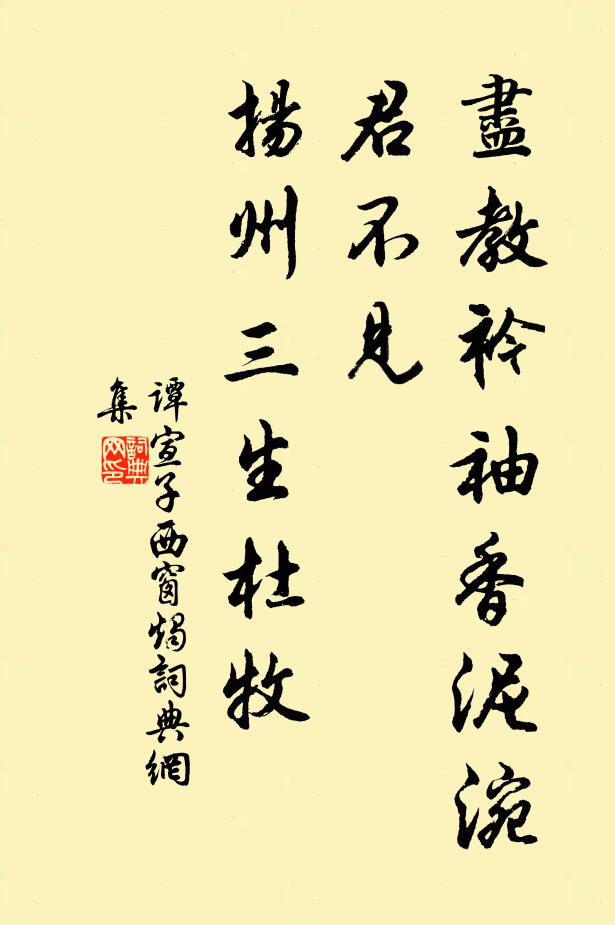 盡教衿袖香泥涴
君不見
揚州三生杜牧
譚宣子西窗燭詞典網
集
詞典網印